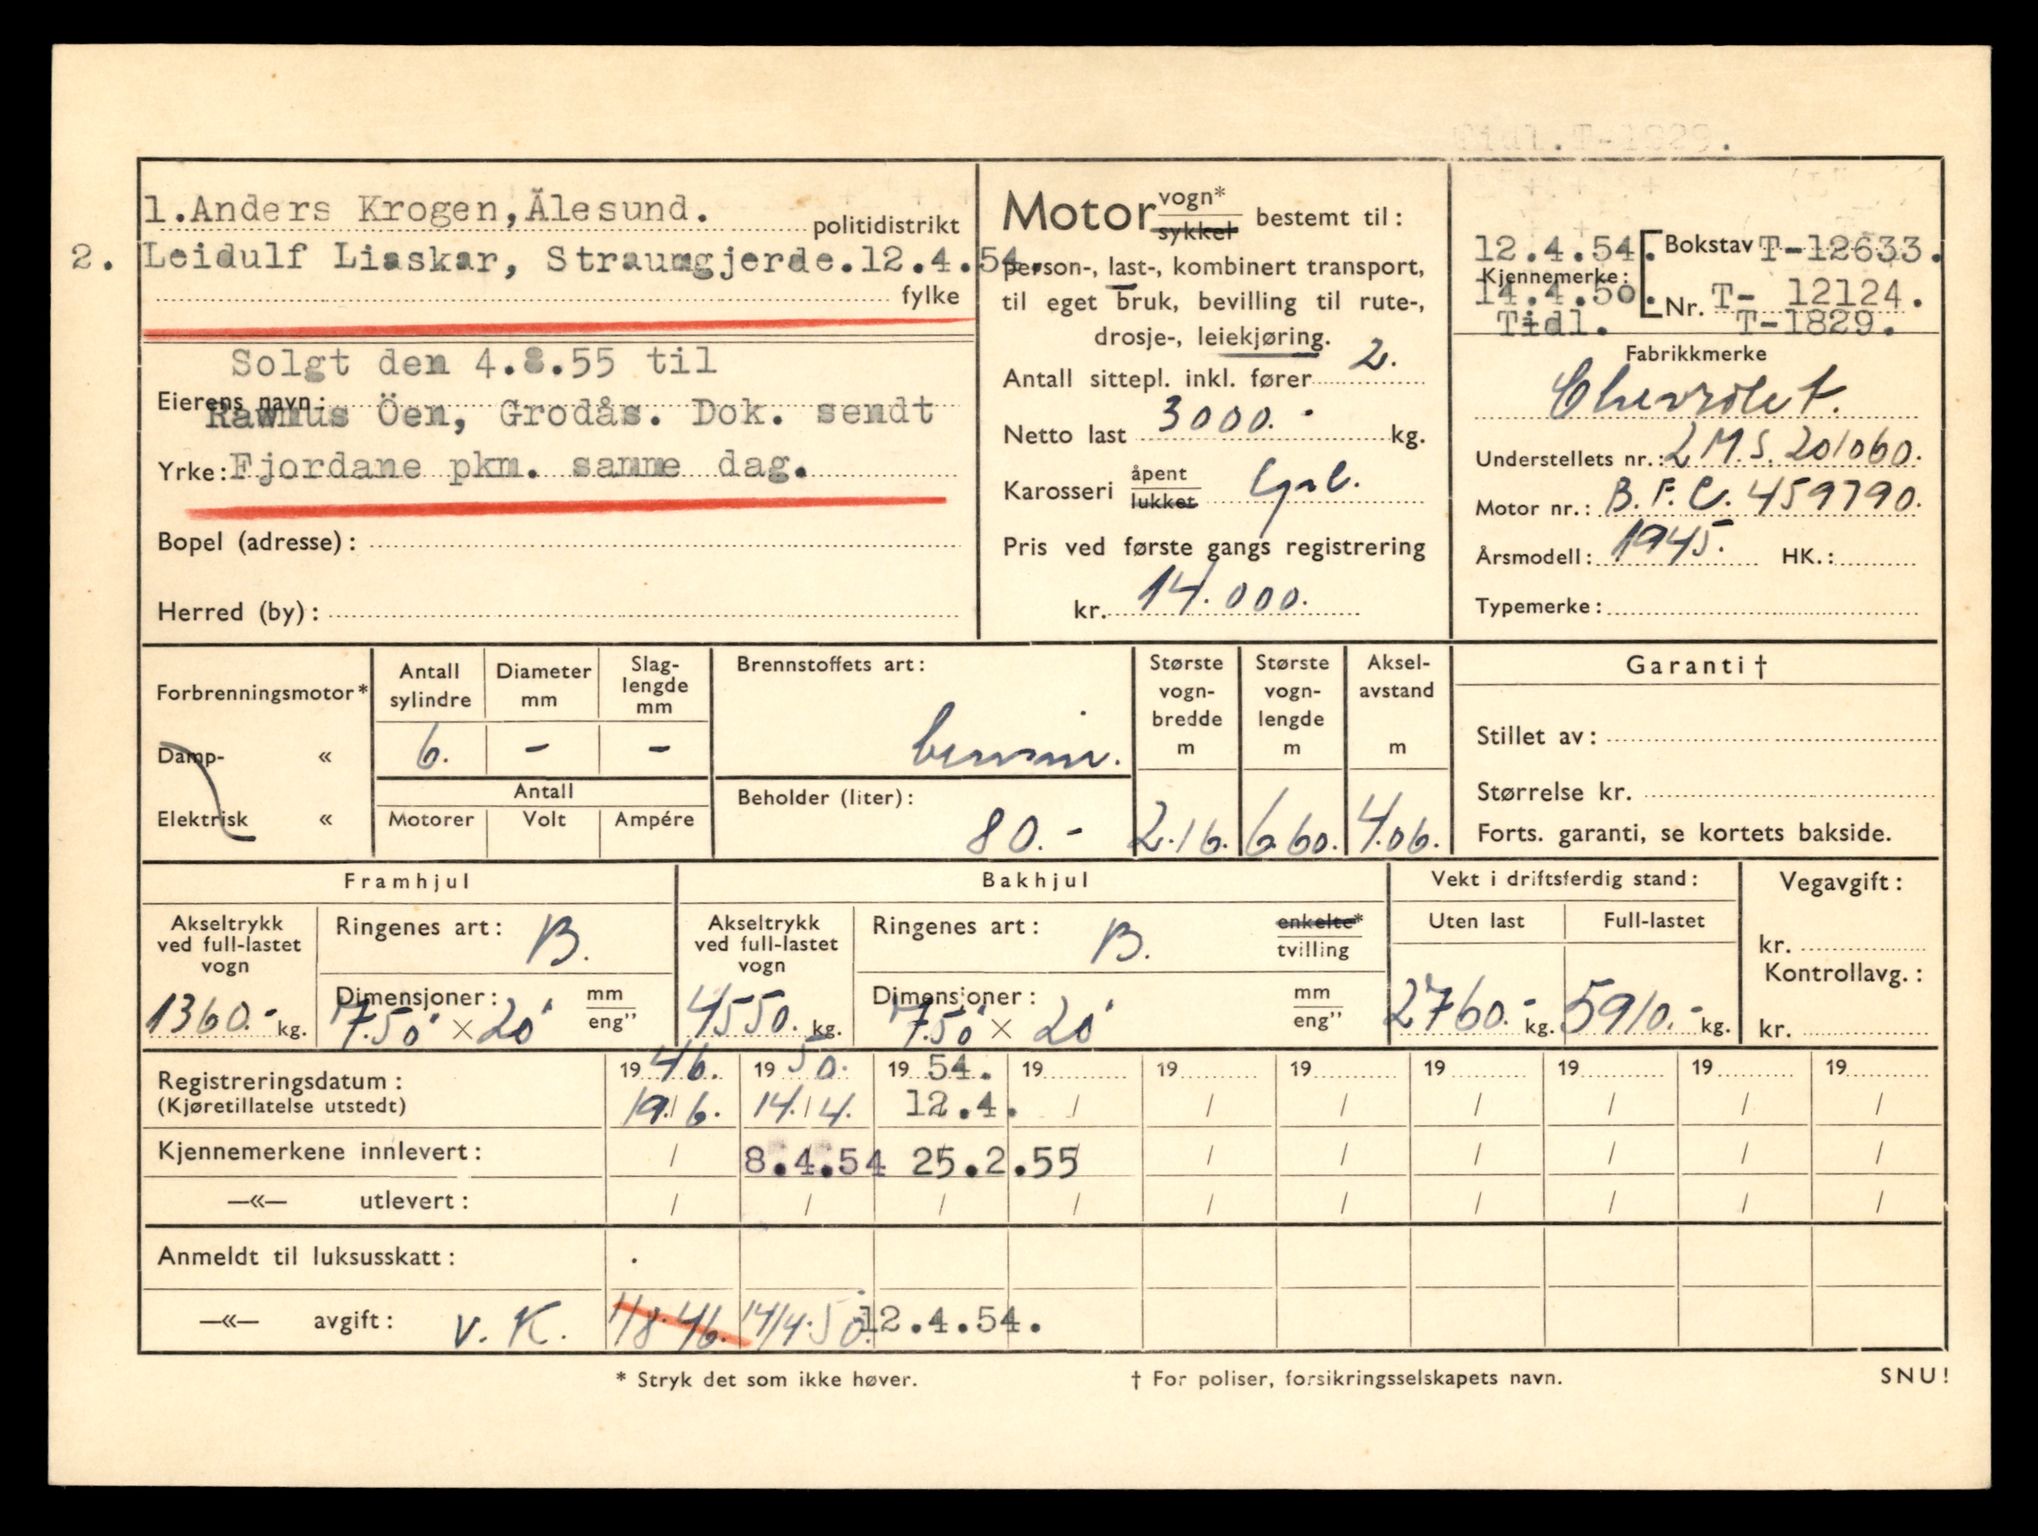 Tidl.T-1829.
1.Anders Krogen,Älesund.
politidistrikt
2. Leidulf Liaskar, Straumgjerde.12.4.54.
fylke
Solgt den 4.8.55 til
Eierens navn:
Rasmus Öen, Grodås. Dok. sendt
Yrke: Fjordane pkm. samme dag.
Bopel (adresse):
Herred (by):
Motor vogn* sykkel bestemt til:
person-, last-, kombinert transport,
til eget bruk, bevilling til rute-,
drosje-, leiekjøring.
Antall sittepl. inkl. fører 2.
Netto last 3000.- kg.
Karosseri åpent lukket
Pris ved første gangs registrering
kr. 14.000.
12.4.54. Bokstav T-12633.
Kjennemerke:
14.4.50. Nr. T- 12124.
Tidl. T-1829.
Fabrikkmerke
Chevrolet.
Understellets nr.: 2 M.S. 201060.
Motor nr.: B.F.C. 459790.
Årsmodell: 1945. HK.:
Typemerke:
Forbrenningsmotor*
Damp- «
Elektrisk «
Antall sylindre
Diameter mm
Slag-lengde mm
6. - -
Antall
Motorer Volt Ampére
Brennstoffets art:
bensin.
Beholder (liter):
80.-
Største vogn-bredde m
2.16.
Største vogn-lengde m
6.60.
Aksel-avstand m
4.06.
Garanti †
Stillet av:
Størrelse kr.
Forts. garanti, se kortets bakside.
Framhjul
Akseltrykk ved full-lastet vogn
1360.- kg.
Ringenes art: B.
Dimensjoner: mm eng"
7.50" × 20"
Bakhjul
Akseltrykk ved full-lastet vogn
4550. kg.
Ringenes art: B. enkelte* tvilling
Dimensjoner: mm eng"
7.50" × 20"
Vekt i driftsferdig stand:
Uten last Full-lastet
2760.- kg. 5910.- kg.
Vegavgift:
kr.
Kontrollavg.:
kr.
Registreringsdatum: 19 46. 19 50. 19 54. 19 19 19 19 19 19 19
(Kjøretillatelse utstedt) 19./6. 14./4. 12.4. / / / / / / /
Kjennemerkene innlevert: / 8.4.54 25.2.55 / / / / / /
—«— utlevert: / / / / / / / / / /
Anmeldt til luksusskatt:
—«— avgift: v. K. 1/8.46. 14/4.50. 12.4.54.
* Stryk det som ikke høver.
† For poliser, forsikringsselskapets navn.
SNU!